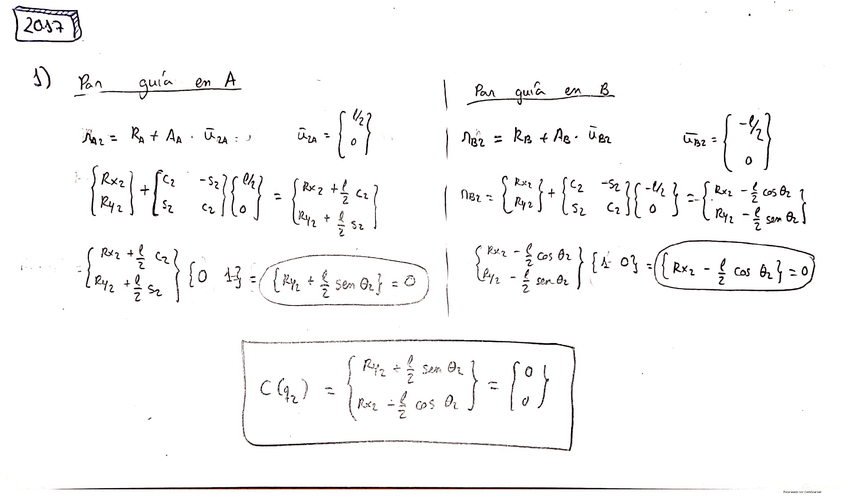 2017
1) Par guía en A
r_A2 = R_A + A_A · ū_2A ū_2A = { l/2 0 }
{ Rx2 Ry2 } + [ c2 -s2 s2 c2 ] { l/2 0 } = { Rx2 + l/2 c2 Ry2 + l/2 s2 }
{ Rx2 + l/2 c2 Ry2 + l/2 s2 } { 0 1 } = { Ry2 + l/2 sen θ2 } = 0
Par guía en B
r_B2 = R_B + A_B · ū_B2 ū_B2 = { -l/2 0 }
r_B2 = { Rx2 Ry2 } + { c2 -s2 s2 c2 } { -l/2 0 } = { Rx2 - l/2 cos θ2 Ry2 - l/2 sen θ2 }
{ Rx2 - l/2 cos θ2 Ry2 - l/2 sen θ2 } { 1 0 } = { Rx2 - l/2 cos θ2 } = 0
C(q2) = { Ry2 + l/2 sen θ2 Rx2 - l/2 cos θ2 } = { 0 0 }